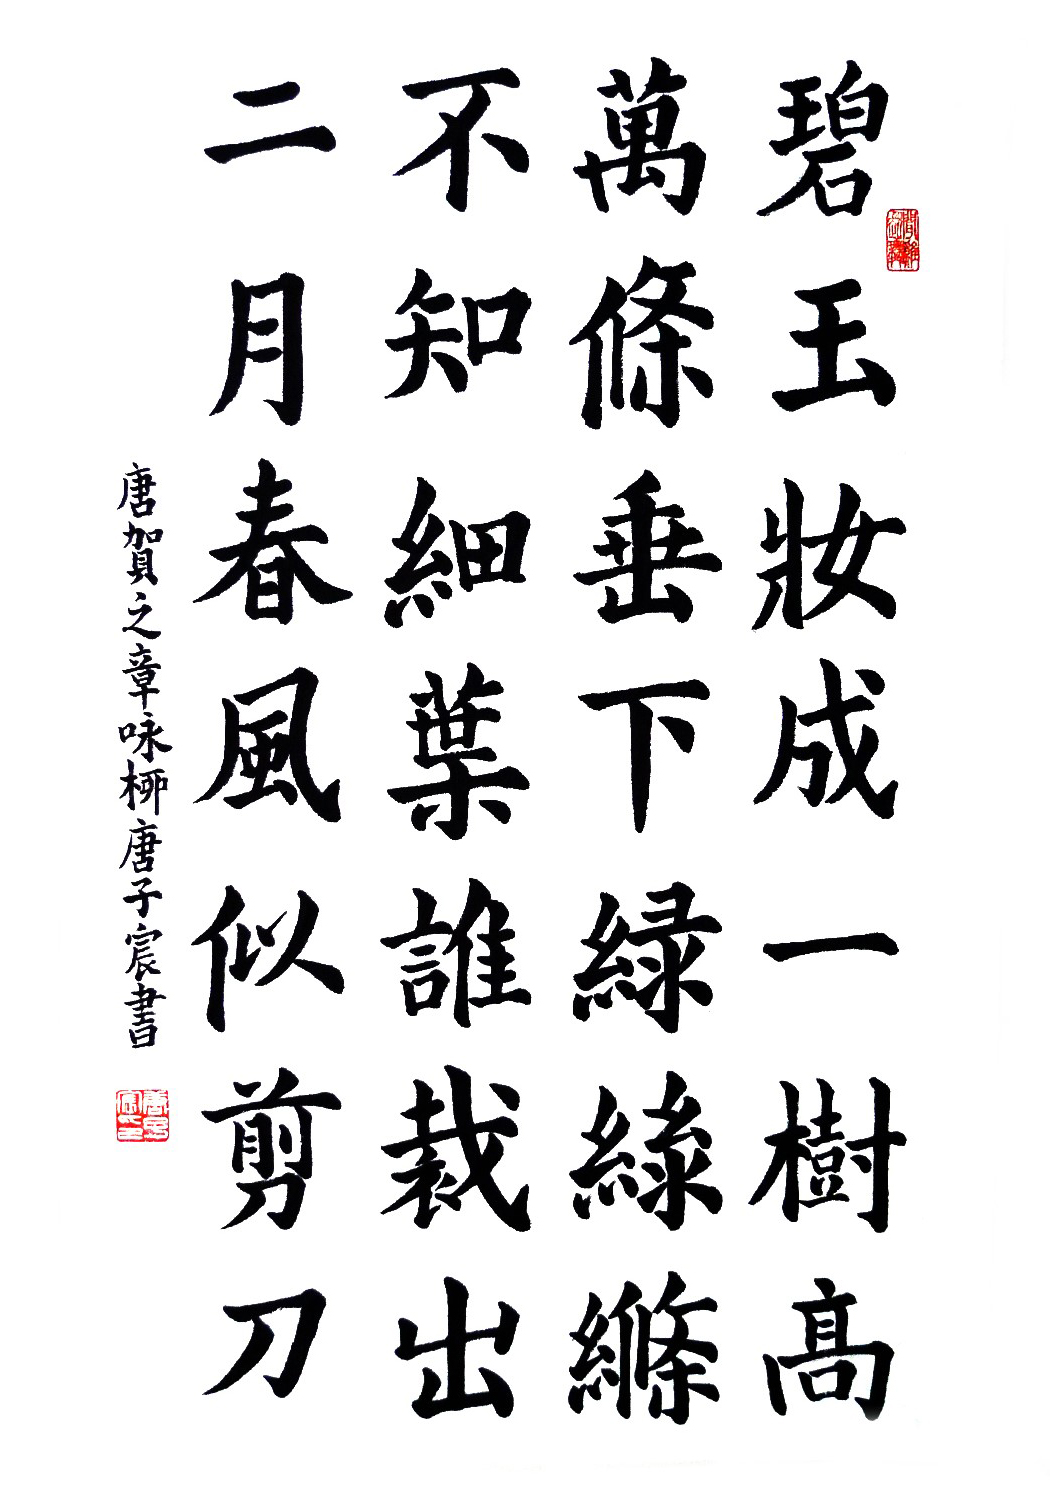 碧玉妝成一樹髙
萬條垂下緑絲縧
不知細葉誰裁出
二月春風似剪刀
唐賀之章咏柳唐子宸書